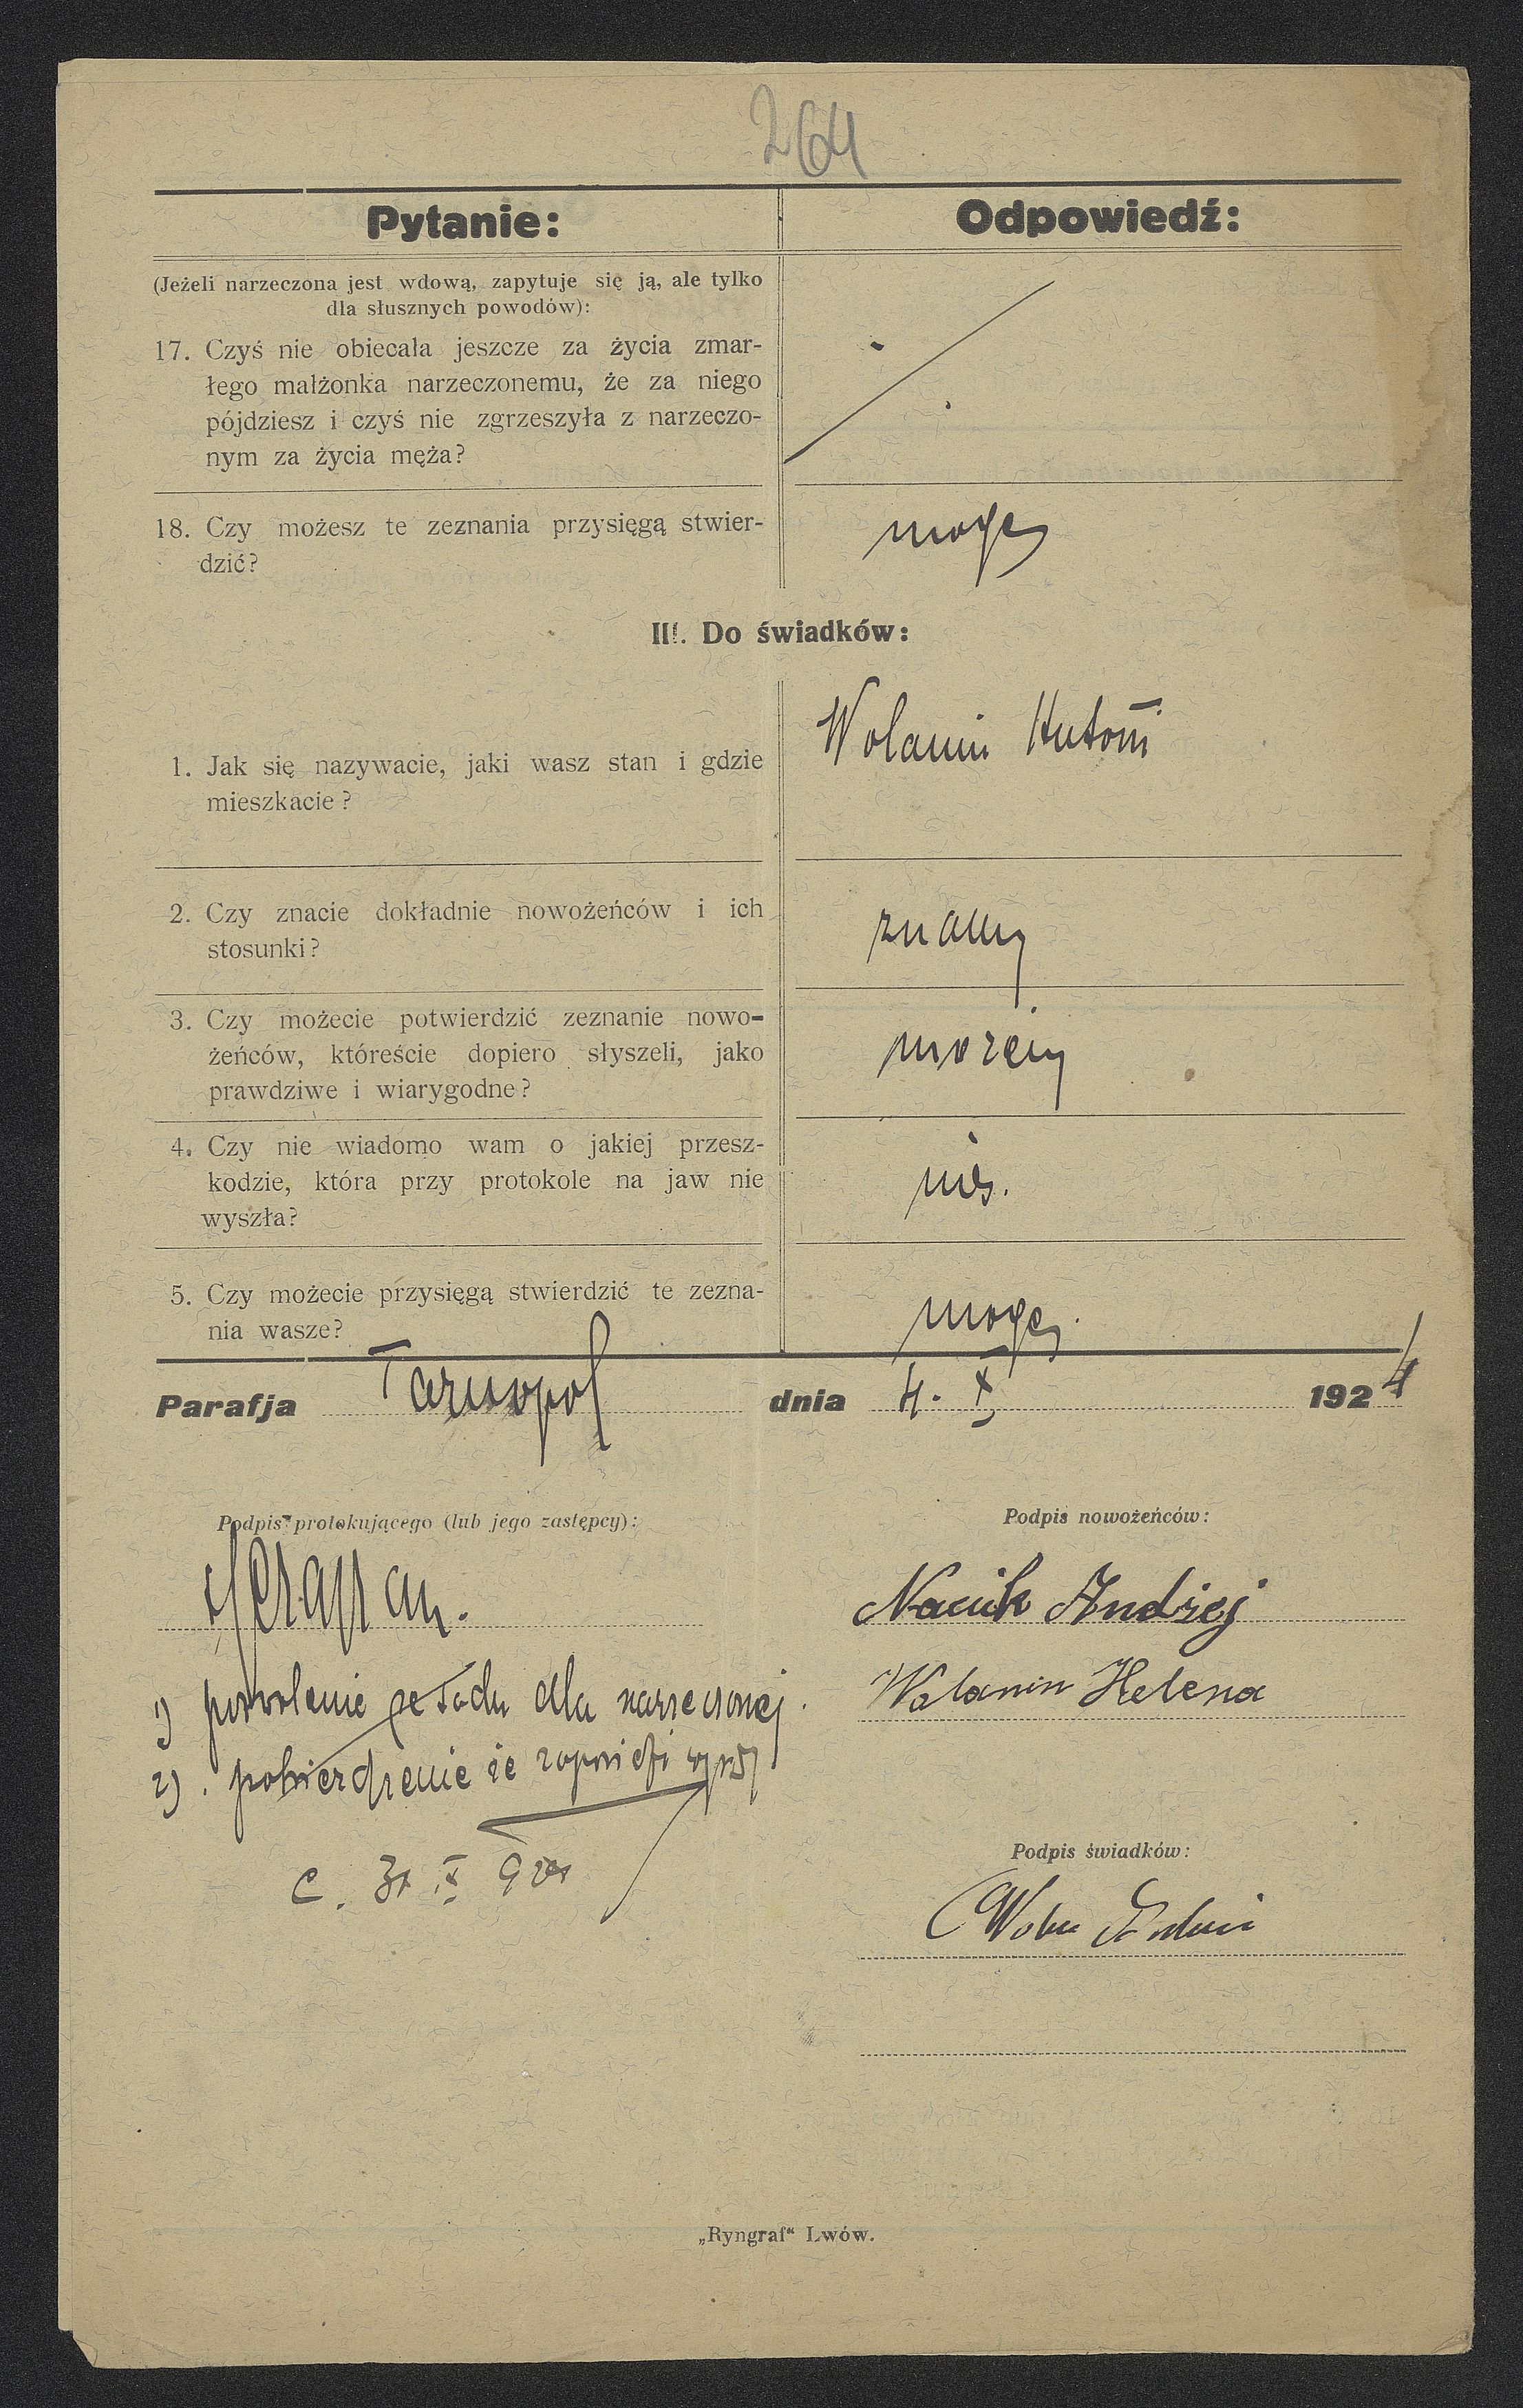 264
Pytanie:
Odpowiedź:
(Jeżeli narzeczona jest wdową, zapytuje się ją, ale tylko
dla słusznych powodów):
17. Czyś nie obiecała jeszcze za życia zmar-
łego małżonka narzeczonemu, że za niego
pójdziesz i czyś nie zgrzeszyła z narzeczo-
nym za życia męża?
18. Czy możesz te zeznania przysięgą stwier-
dzić?
mogę
III. Do świadków:
1. Jak się nazywacie, jaki wasz stan i gdzie
mieszkacie?
Wolanin Antoni
2. Czy znacie dokładnie nowożeńców i ich
stosunki?
znamy
3. Czy możecie potwierdzić zeznanie nowo-
żeńców, któreście dopiero słyszeli, jako
prawdziwe i wiarygodne?
możemy
4. Czy nie wiadomo wam o jakiej przesz-
kodzie, która przy protokole na jaw nie
wyszła?
nie.
5. Czy możecie przysięgą stwierdzić te zezna-
nia wasze?
mogę.
Parafja Tarnopol dnia 4. X 1924
Podpis protokującego (lub jego zastępcy):
Podpis nowożeńców:
Nacuk Andrzej
Wolanin Helena
1) pozwolenie ze Sądu dla narzeczonej.
2). potwierdzenie że zapowiedzi
Podpis świadków:
„Ryngraf“ Lwów.